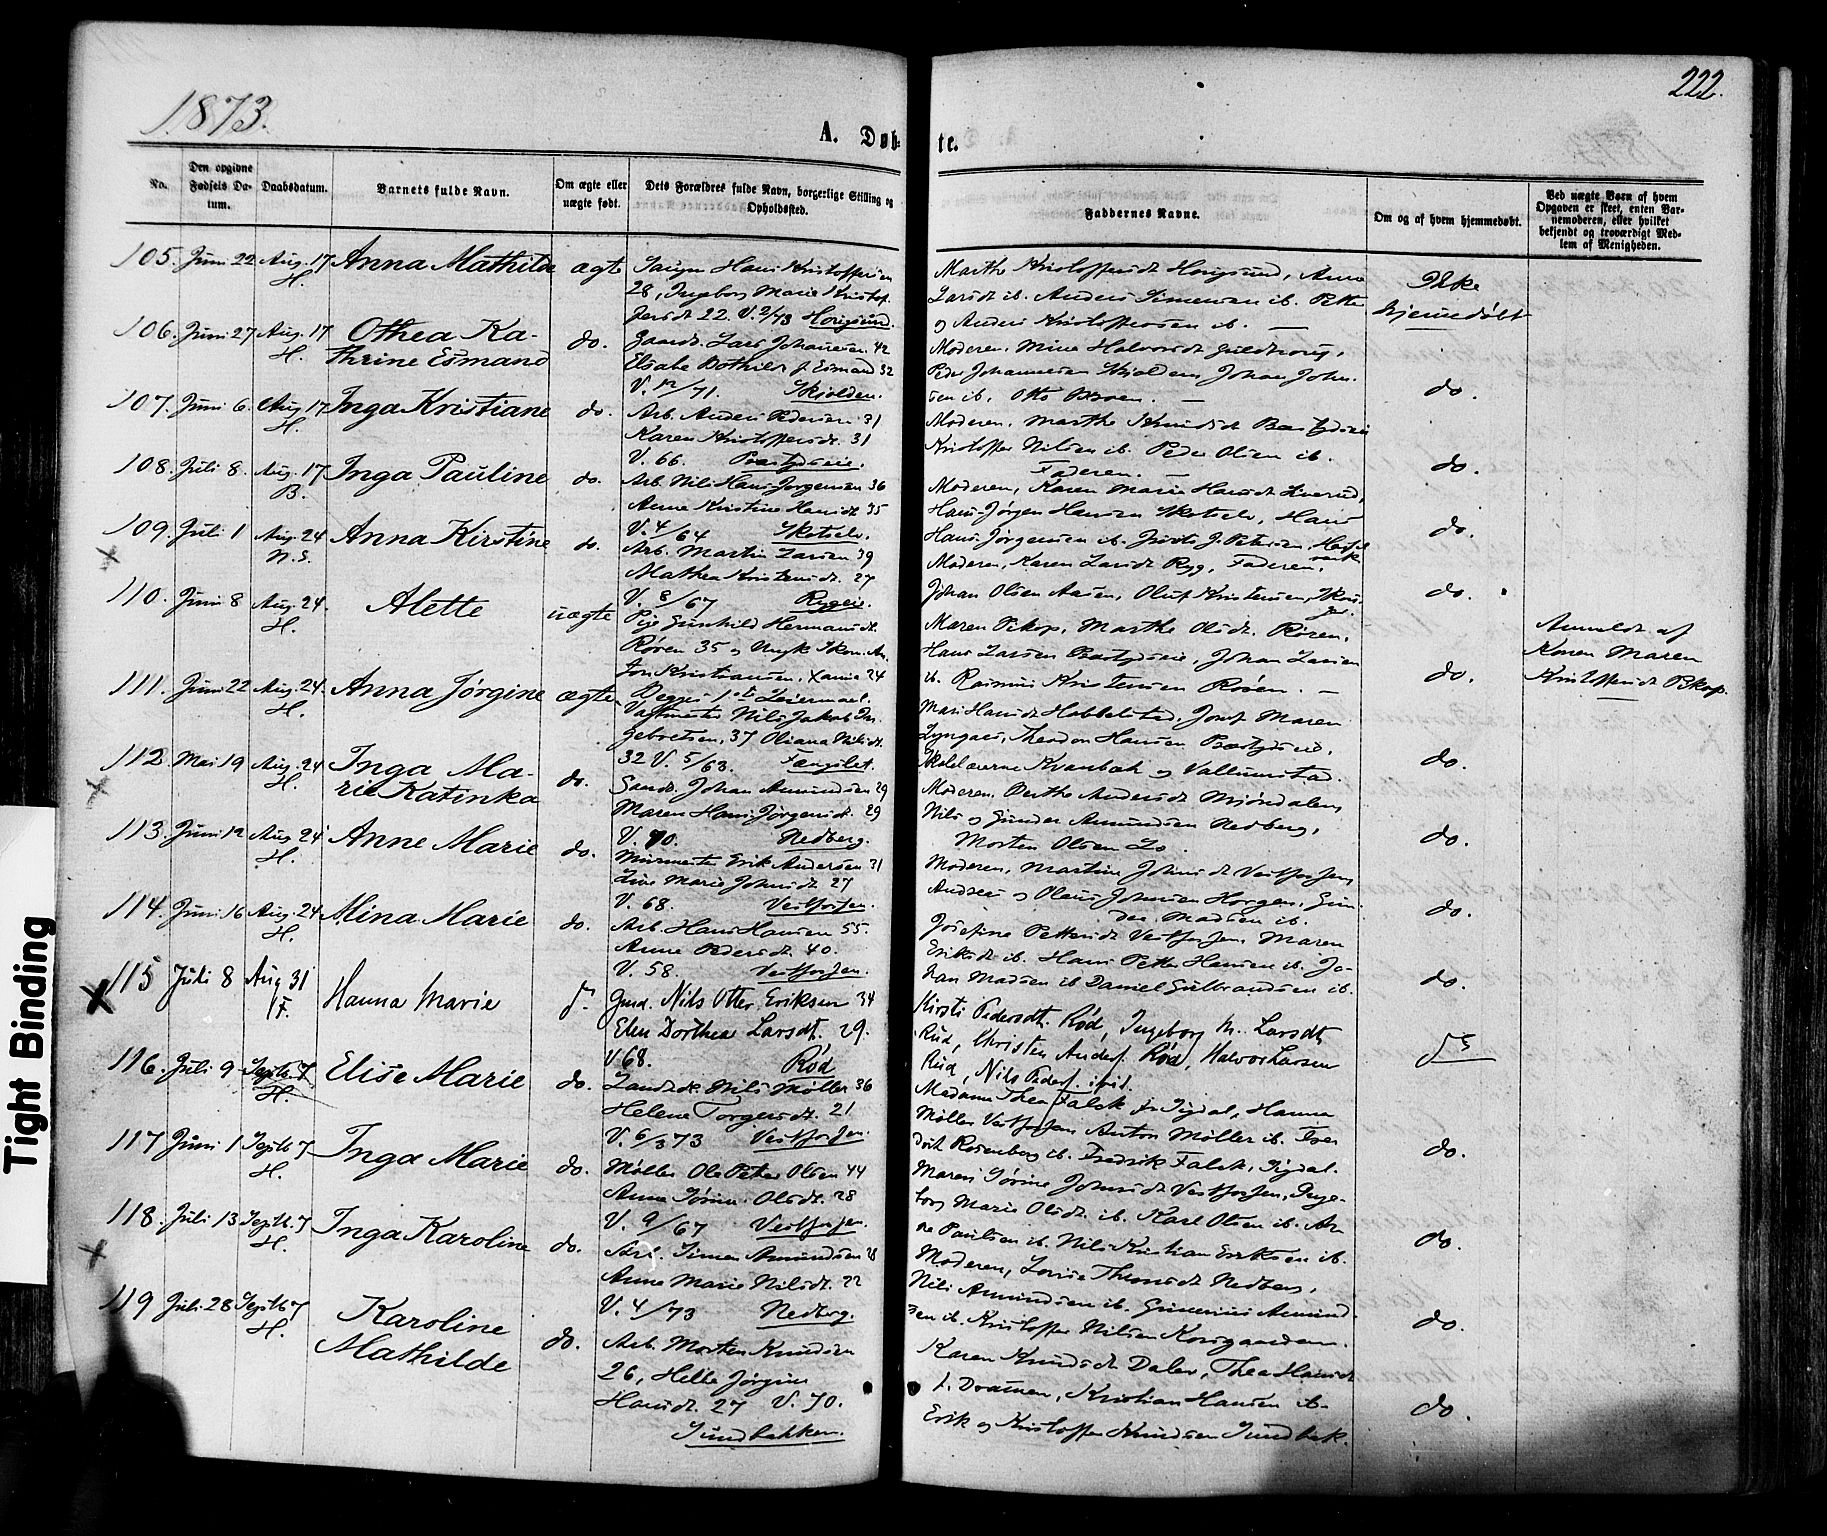 222.
1873.
A. Døb-
te.
No.
Den opgivne
Fødsels Da-
tum.
Daabsdatum.
Barnets fulde Navn.
Om ægte eller
uægte født.
Dets Forældres fulde Navn, borgerlige Stilling og
Opholdssted.
Faddernes Navne.
Om og af hvem hjemmedøbt.
Ved uægte Børn af hvem
Opgaven er skeet, enten Bar-
nemoderen, eller hvilket
bekjendt og troværdigt Med-
lem af Menigheden.
105. Juni 22 Aug. 17 Anna Mathilde ægte
H.
28, Ingeborg Marie Kristof-
fersdt 22. V. 2/73
Marthe Kristoffersdt
Larsdt ib. Anders Simensen ib.
og Anders Kristoffersen ib. —
Ikke
hjemmedøbt
106. Juni 27 Aug. 17 Othea Ka-
H. thrine Esmand do.
Gaardt. Lars Johannesen 42
Elsabe Bothilde f. Esmand 32
V. 12/71. Skjolden.
Moderen, Mine Halvorsdt
Peder Johannesen Skjolden, Johan John-
sen ib. Otto —
do.
107. Juni 6. Aug. 17 Inga Kristiane do.
H.
Arb. Anders Pedersen 31
Karen Kristoffersdt. 31
V. 66.
Moderen, Marthe Knudsdt
Kristoffer Nilsen ib. Peder Olsen ib.
Faderen. —
do.
108. Juli 8. Aug. 17 Inga Pauline do.
B.
Arb. Nils Hans Jørgensen 36
Anne Kristine Hansdt 35
V. 4/64 Skotselv.
Moderen, Karen Marie Hansdt
Hans Jørgen Hansen Skotselv, Hans
Hans Jørgensen ib.
do.
109. Juli 1 Aug. 24 Anna Kirstine do.
N.S.
Arb. Martin Larsen 39
Mathea Kristensdt. 27
V. 8/67
Moderen, Karen Larsdt Ryg, Faderen,
Johan Olsen Aasen, Oluf Kristensen,
do.
110. Juni 8 Aug. 24. Alette uægte
H.
Pige Gunhild Hermansdt.
Røren 35 og Ungk.
Kristiansen, 24
Begges 1ste Leiermaal.
Maren Pekop, Marthe Olsdt. Røren,
Hans Larsen Johan Larsen
ib. Rasmus Kristensen Røren. —
do.
Anmeldt af
Konen Maren
Kristoffersdt Pekop.
111. Juni 22 Aug. 24. Anna Jørgine ægte
H.
Vagtmester Nils Jakob In-
gebretsen, 37 Oliana Nilsdt.
32 V. 5/63. Fængslet.
Mari Hansdt Hobbelstad, Maren
Lyngaas, Theodor Hansen
Skolelærerne Kvambæk og Vallumstad.
do.
112. Mai 19 Aug. 24 Inga Ma-
H. rie Katinka do.
Gaardt. Johan Amundsen 29
Maren Hans Jørgensdt. 29
V. 70. Nedberg.
Moderen. Berthe Andersdt Mjøndalen,
Nils og Gunder Amundsen Nedberg,
Morten Olsen Lo.
do.
113. Juni 12 Aug. 24 Anne Marie do.
H.
Murmester Erik Andersen 31
Line Marie Johnsdt. 27
V. 68. Vestfossen.
Moderen, Martine Johnsdt Vestfossen,
Andreas og Olaus Johnsen Horgen, Gun-
der Madsen ib.
do.
114. Juni 16 Aug. 24 Mina Marie do.
H.
Arb. Hans Hansen 55.
Anne Pedersdt. 40.
V. 58. Vestfossen.
Josefine Pettersdt Vestfossen, Maren
Eriksdt ib. Hans Petter Hansen ib. Jo-
han Madsen ib Daniel Gulbrandsen ib.
do.
115 Juli 8 Aug 31 Hanna Marie
F.
Gmd. Nils Otter Eriksen 34
Elen Dorthea Larsdt. 29.
V 68. Rød
Kirsti Pedersdt. Rød, Ingeborg M. Larsdt
Rud, Christen Anders. Rød, Halvor Larsen
Rud, Nils Peders. ibid.
116. Juli 9 Septb. 7 Elise Marie do.
H.
Landh. Nils Møller 36
Helene Torgersdt. 21
V. 6/3 73 Vestfossen.
Madame Thea Falck fr Sigdal, Hanna
Møller Vestfossen Anton Møller ib. Fre-
drik Rosenberg ib. Fredrik Falck, Sigdal.
do.
117 Juni 1 Septb 7 Inga Marie do.
H.
Møller Ole Peter Olsen 44
Anne Sørine Olsdt. 28
V. 9/67 Vestfossen.
Maren Sørine Johnsdt Vestfossen, Inge-
borg Marie Olsdt. ib. Karl Olsen ib. Ar-
ne Paulsen ib. Nils Kristian Eriksen ib.
do.
118. Juli 13 Septb. 7 Inga Karoline do.
H.
Arb. Simen Amundsen 28
Anne Marie Nilsdt. 22
V. 4/73 Nedberg.
Moderen, Lovise Thomsdt Nedberg,
Nils Amundsen ib. Gunerius Amund-
sen ib. Kristoffer Nilsen Korsgaarden.
do.
119 Juli 28 Septb 7 Karoline
H. Mathilde do.
Arb. Morten Knudsen
26, Helle Jørgine
Hansdt. 27 V. 70.
Sundbakken.
Karen Knudsdt Daler, Thea Hansdt
f. Drammen, Kristian Hansen ib.
Erik og Kristoffer Knudsen Sundbak.
do.
Tight Binding